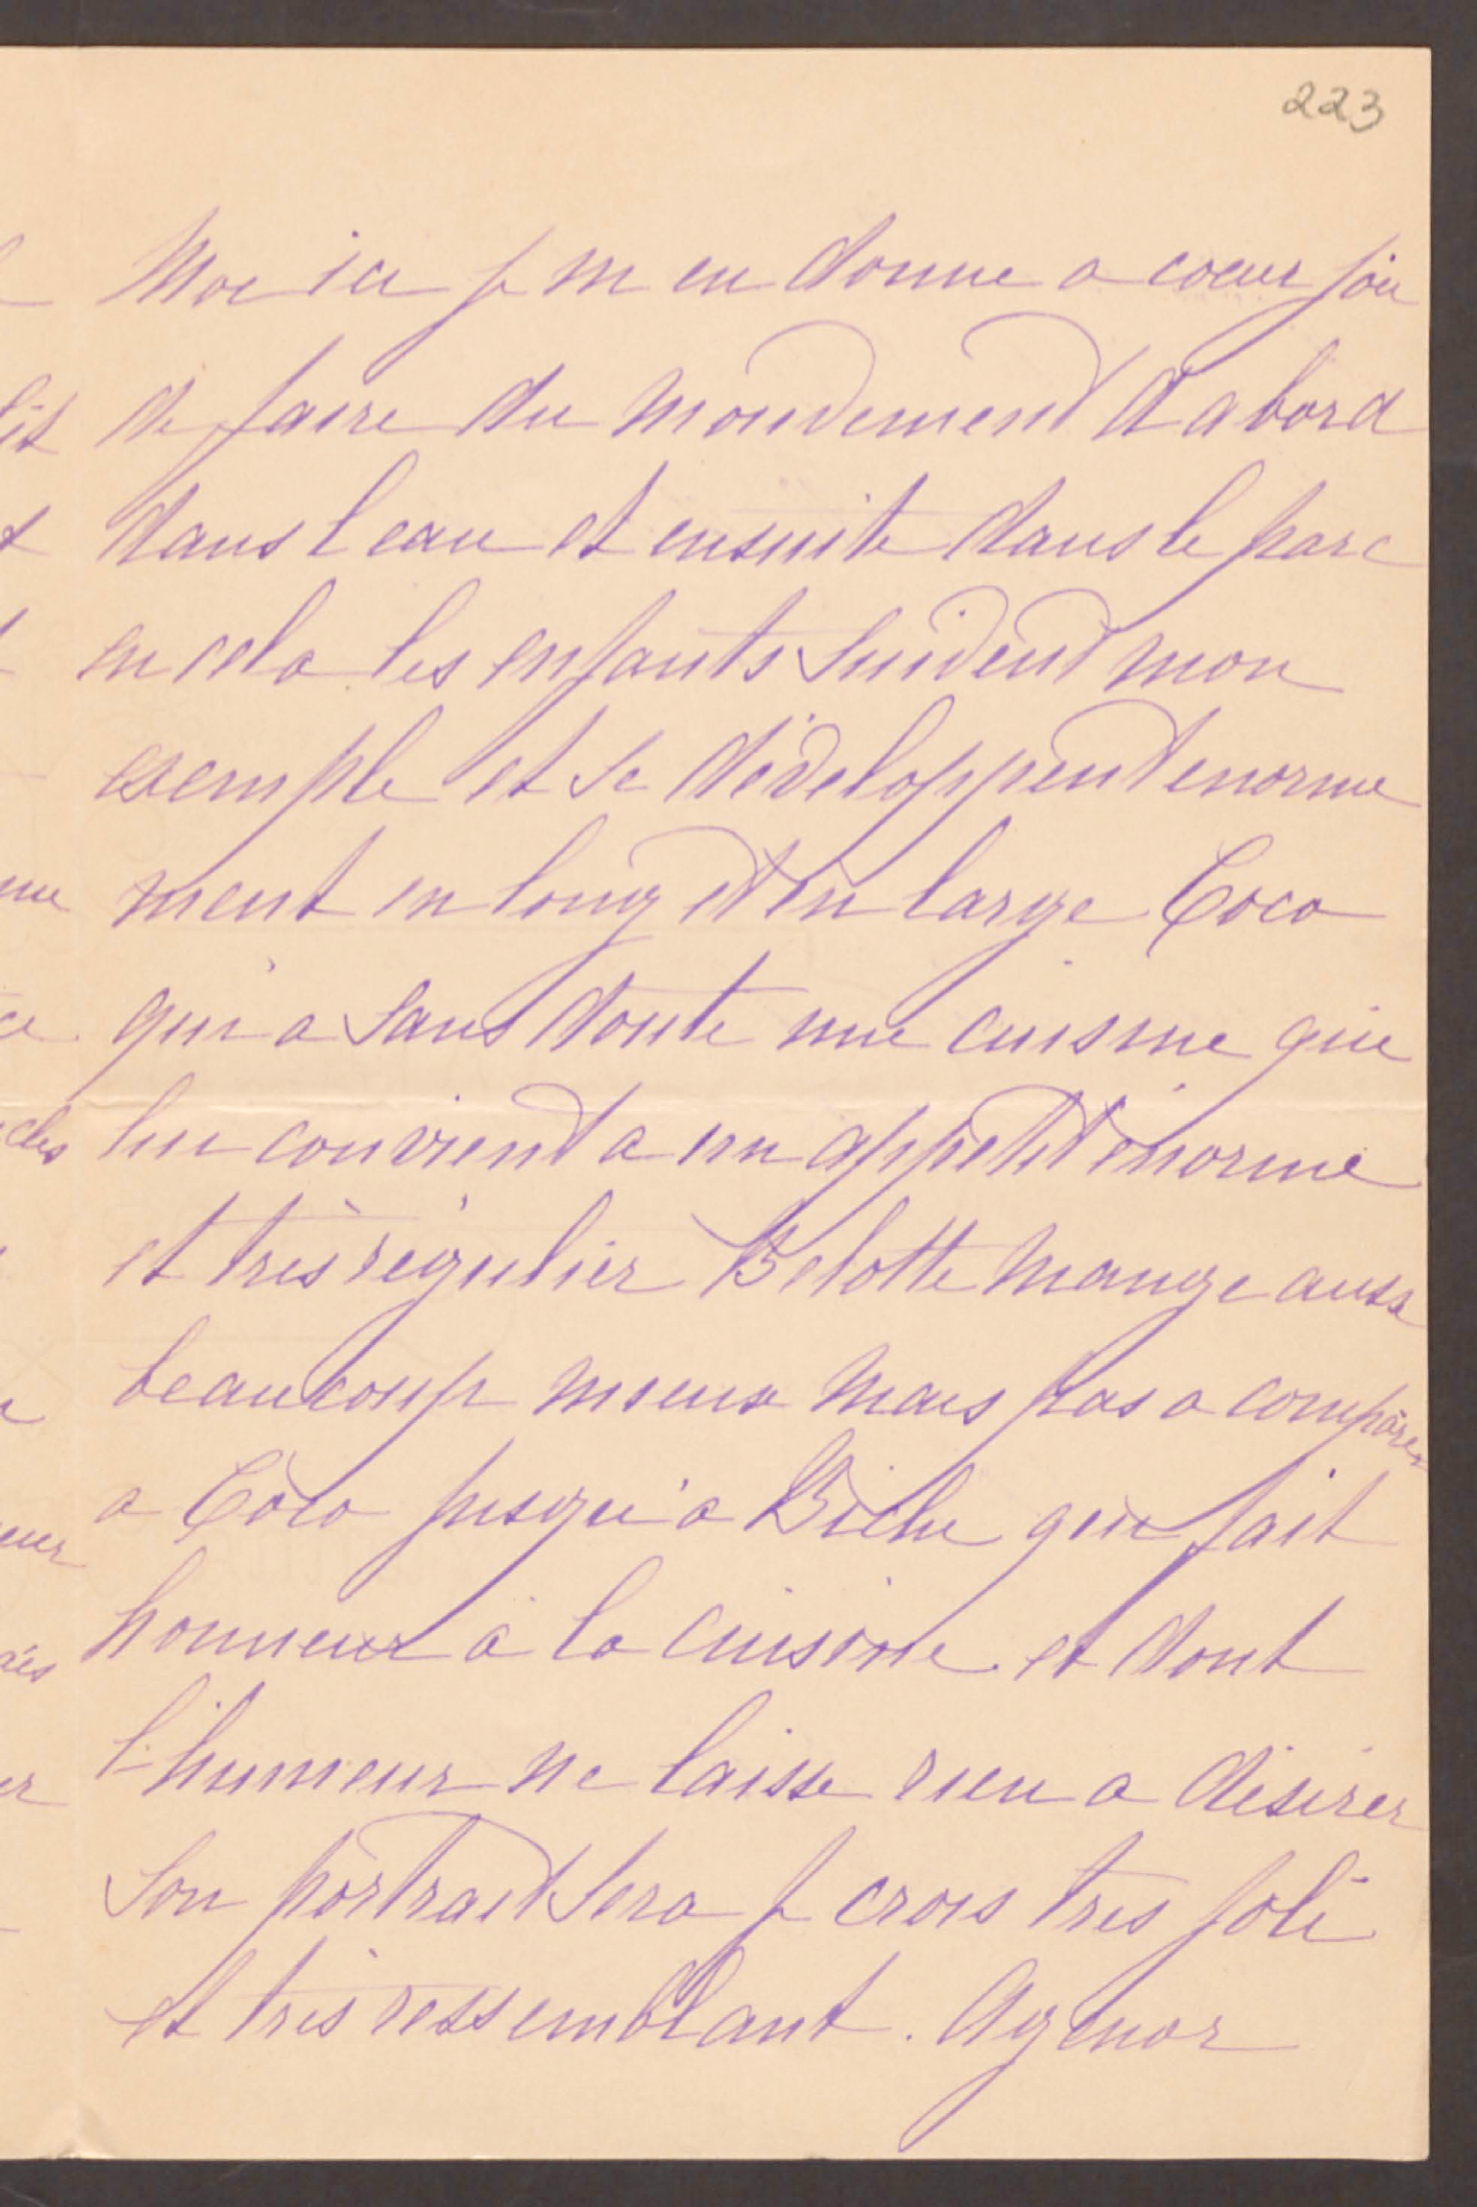 223
Moi ici je m en donne a cœur joie
de faire du mouvement d abord
dans l eau et ensuite dans le parc
en cela les enfants suivent mon
exemple et se développent enorme
ment en long et en large Coco
qui a sans doute une cuisine qui
lui convient a un appetit énorme
et très régulier Belotte mange aussi
beaucoup mieux mais pas a comparer
a Coco jusqu'a Biche qui fait
honneur à la cuisine et dont
l'humeur ne laisse rien a désirer
Son portrait sera je crois tres joli
et très ressemblant. Agenor